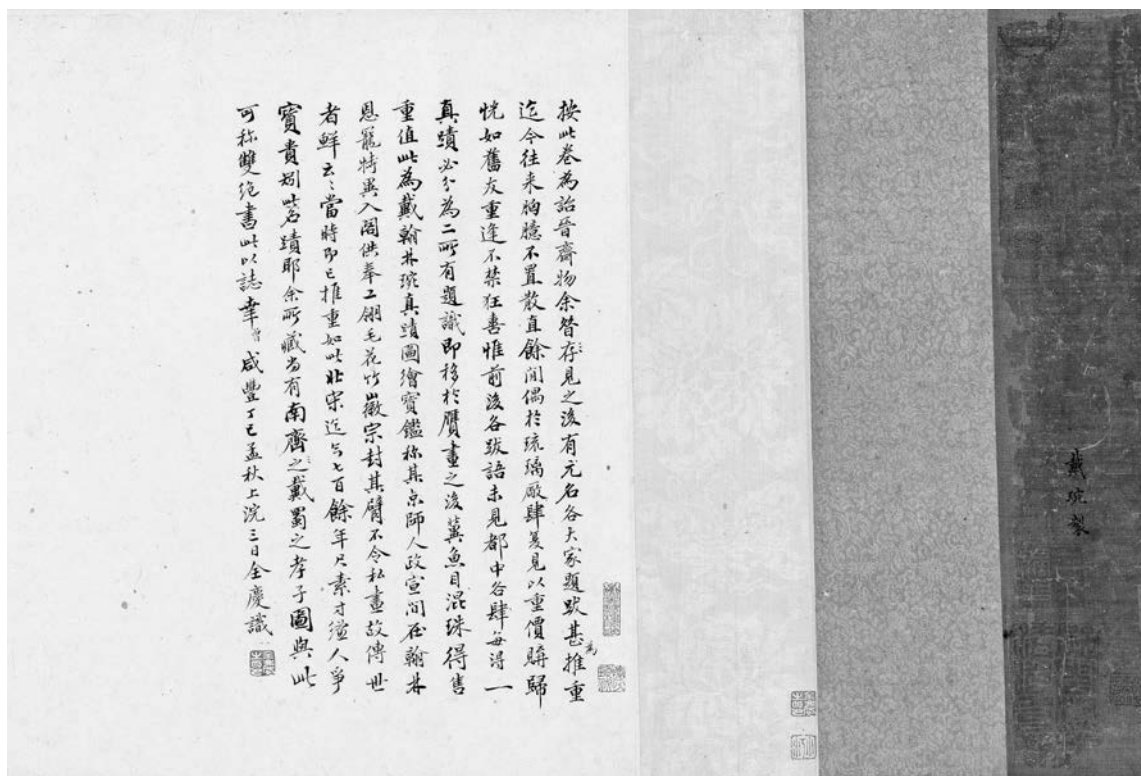 戴琬製
按此卷為詒晉齋物余昝存見之後有元名各大家題跋甚為推重
迄今往来胸臆不置散直餘閒偶於琉璃厰肆复見以重價購歸
恍如舊友重逢不禁狂喜惟前後各跋語未見都中各肆每得一
真蹟必分為二所有題識即移於贋畫之後冀魚目混珠得售
重值此為戴翰林琬真蹟圖繪寳鑑称其京師人政宣間在翰林
恩寵特異入閣供奉工翎毛花竹徽宗封其臂不令私畫故傳世
者鮮云云當時即已推重如此北宋迄今七百餘年尺素寸縑人爭
寳貴矧此名蹟耶余所藏尚有南齊之戴蜀之孝子圖與此
可称雙絶書此以誌幸 咸豐丁巳孟秋上浣三日全慶識